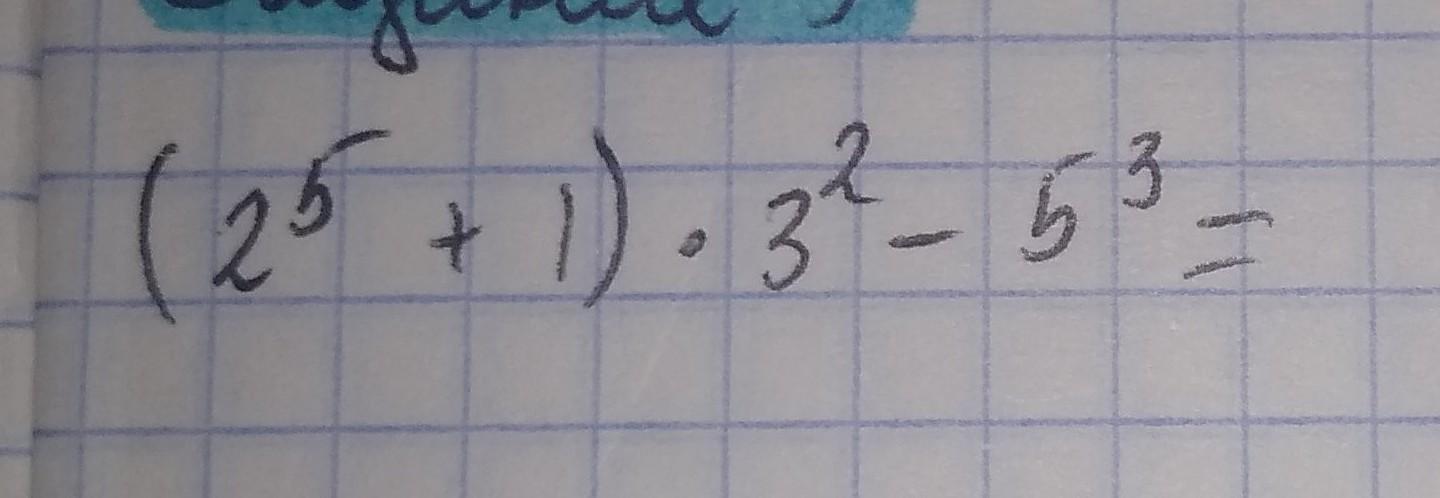 (2⁵ + 1) · 3² - 5³ =